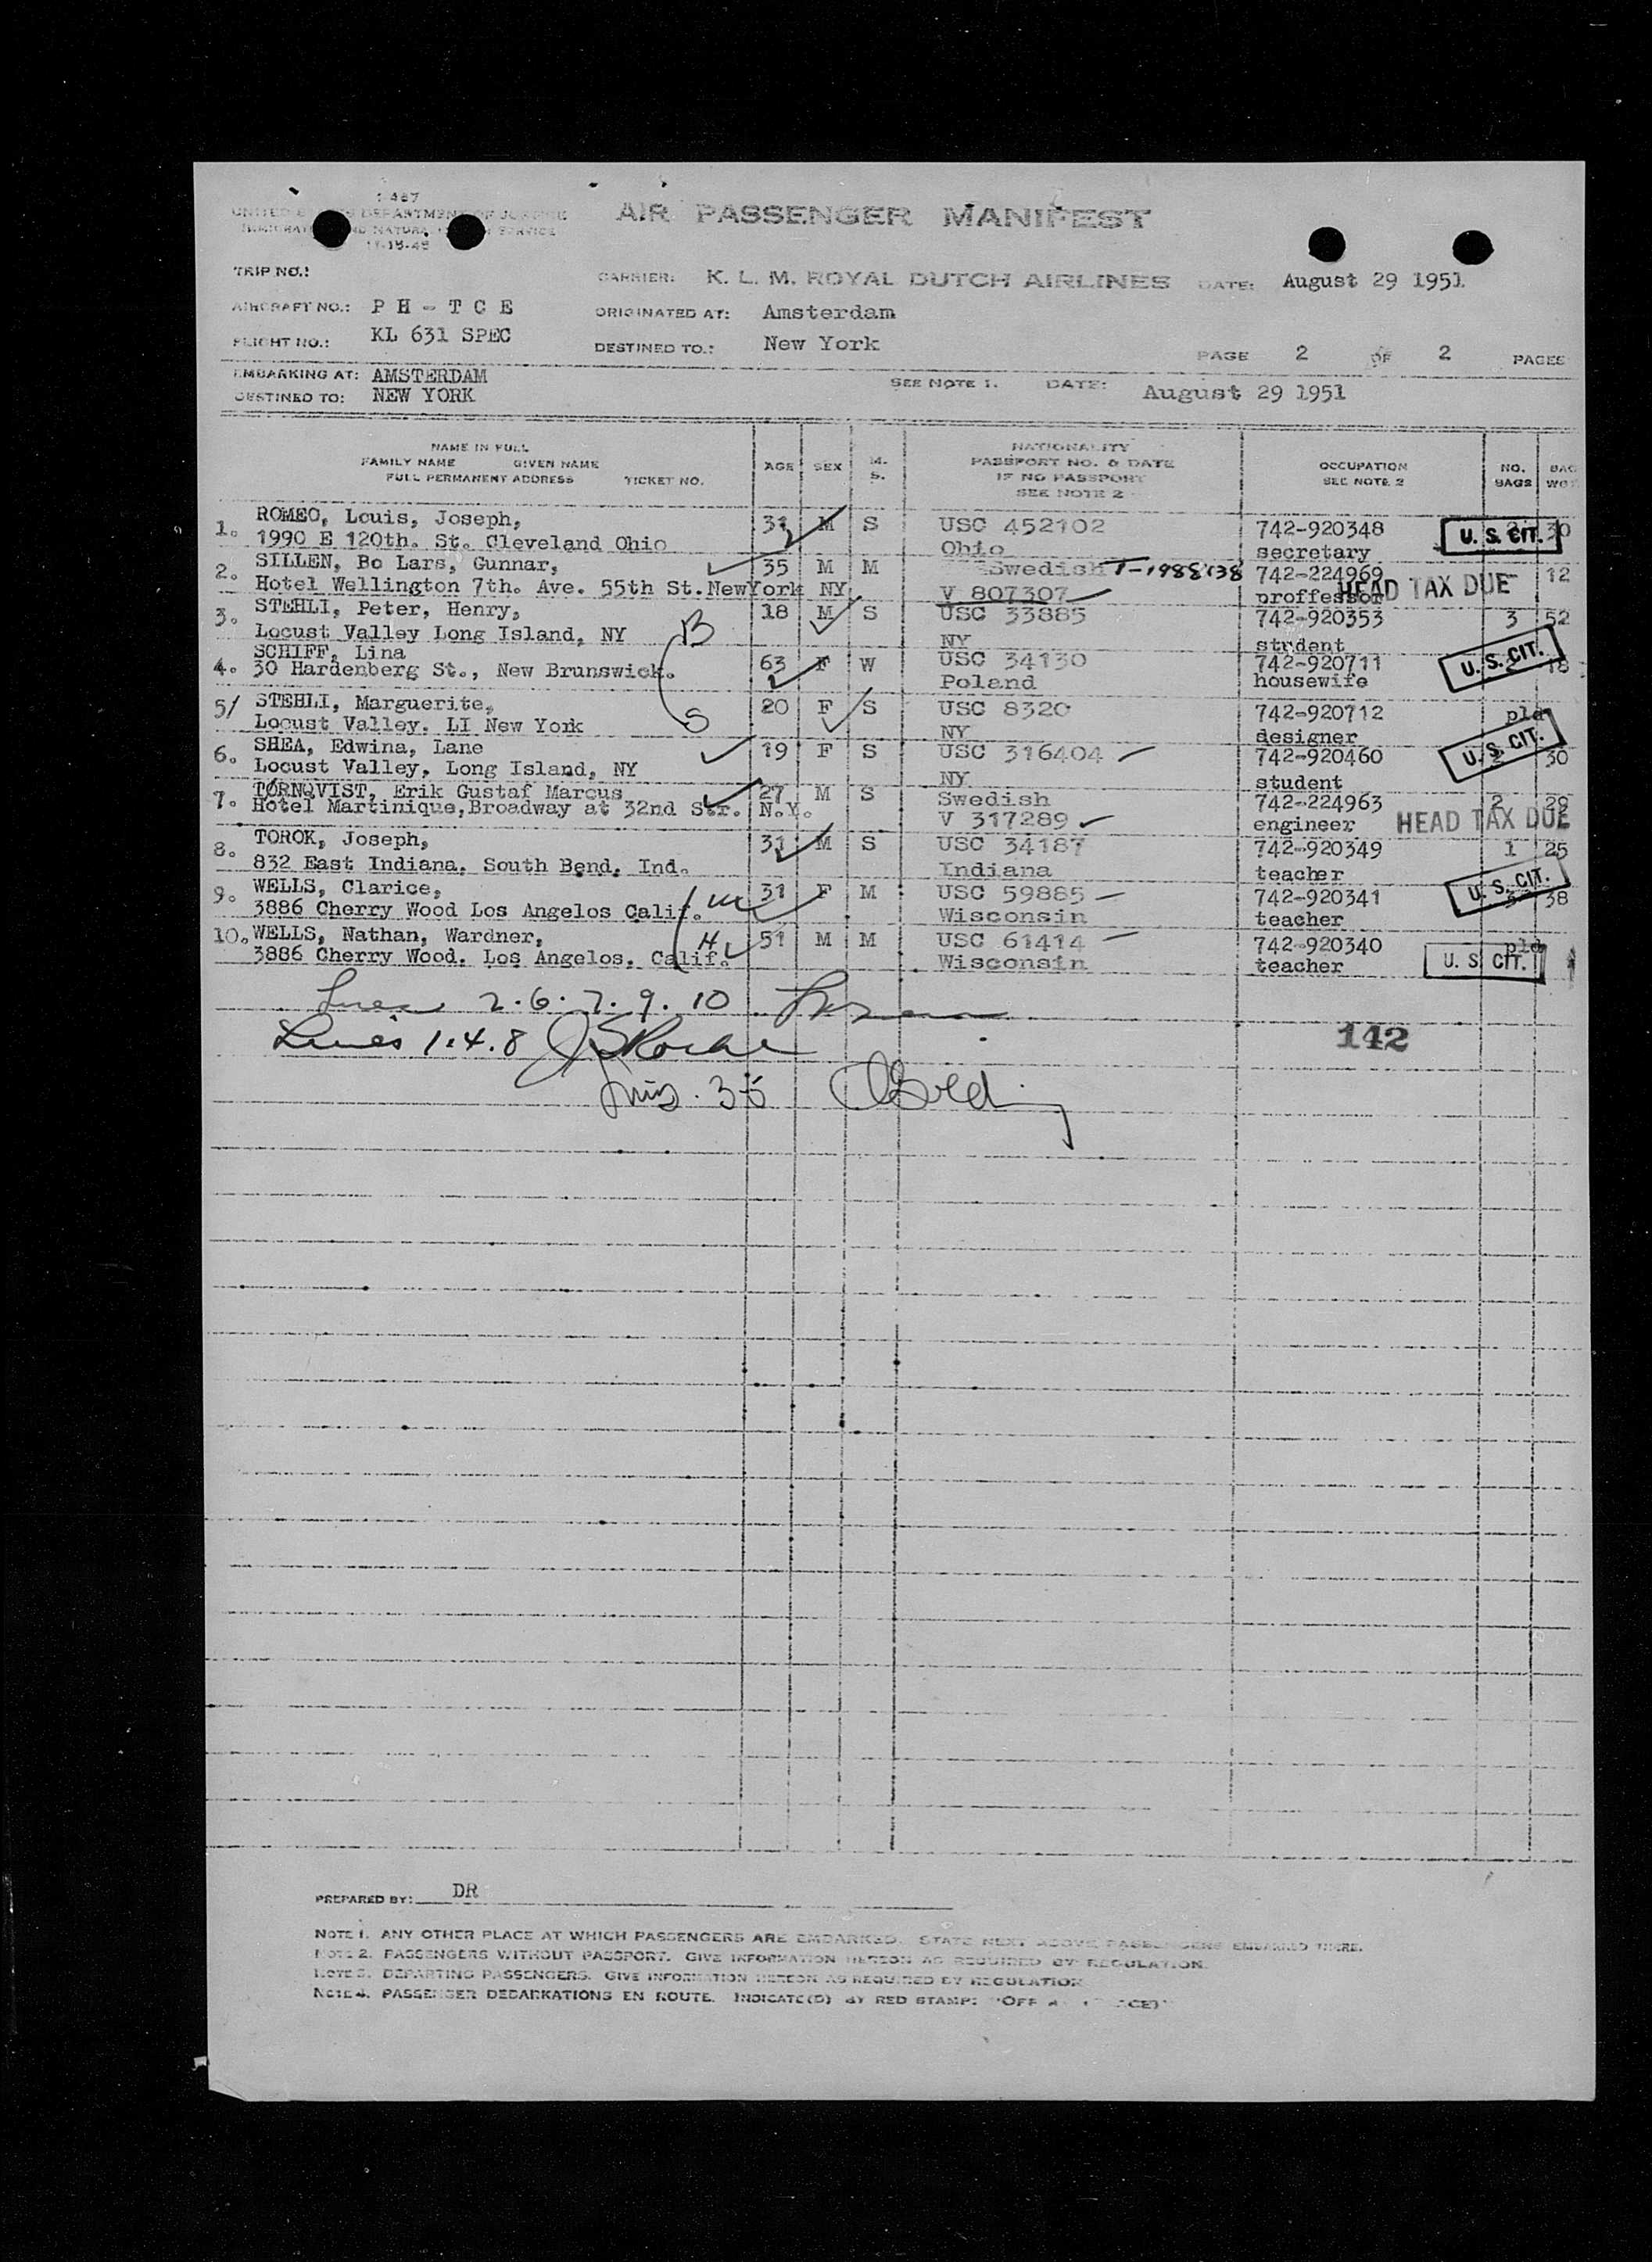 I-487
UNITED STATES DEPARTMENT OF JUSTICE
IMMIGRATION AND NATURALIZATION SERVICE
11-15-45
AIR PASSENGER MANIFEST
TRIP NO.:
CARRIER: K. L. M. ROYAL DUTCH AIRLINES DATE: August 29 1951
AIRCRAFT NO.: P H - T C E ORIGINATED AT: Amsterdam
FLIGHT NO.: KL 631 SPEC DESTINED TO.: New York PAGE 2 OF 2 PAGES
EMBARKING AT: AMSTERDAM SEE NOTE 1. DATE: August 29 1951
DESTINED TO: NEW YORK
NAME IN FULL
FAMILY NAME GIVEN NAME
FULL PERMANENT ADDRESS TICKET NO.
AGE SEX M. S.
NATIONALITY
PASSPORT NO. & DATE
IF NO PASSPORT
SEE NOTE 2
OCCUPATION
SEE NOTE 2
NO. BAGS
BAG WGT
1. ROMEO, Louis, Joseph, 31 M S USC 452102 742-920348 30
1990 E 120th. St. Cleveland Ohio Ohio secretary U. S. CIT.
2. SILLEN, Bo Lars, Gunnar, 35 M M Swedish T-1988138 742-224969 12
Hotel Wellington 7th. Ave. 55th St. NewYork NY V 807307 proffessor HEAD TAX DUE
3. STEHLI, Peter, Henry, 18 M S USC 33885 742-920353 3 52
Locust Valley Long Island, NY B NY strdent
4. SCHIFF, Lina 63 F W USC 34130 742-920711 18
30 Hardenberg St., New Brunswick. Poland housewife U. S. CIT.
5/ STEHLI, Marguerite, 20 F S USC 8320 742-920712 pld
Locust Valley. LI New York S NY designer
6. SHEA, Edwina, Lane 19 F S USC 316404 742-920460 30
Locust Valley, Long Island, NY NY student U. S. CIT.
7. TØRNQVIST, Erik Gustaf Marcus 27 M S Swedish 742-224963 2 29
Hotel Martinique, Broadway at 32nd Str. N.Y. V 317289 engineer HEAD TAX DUE
8. TOROK, Joseph, 31 M S USC 34187 742-920349 1 25
832 East Indiana. South Bend. Ind. Indiana teacher
9. WELLS, Clarice, 31 F M USC 59885 742-920341 3 38
3886 Cherry Wood Los Angelos Calif. W Wisconsin teacher U. S. CIT.
10. WELLS, Nathan, Wardner, 51 M M USC 61414 742-920340 pld
3886 Cherry Wood. Los Angelos. Calif. H Wisconsin teacher U. S. CIT.
2. 6. 7. 9. 10
Lines 1. 4. 8
142
PREPARED BY: DR
NOTE 1. ANY OTHER PLACE AT WHICH PASSENGERS ARE EMBARKED. STATE NEXT ABOVE PASSENGERS EMBARKED THERE.
NOTE 2. PASSENGERS WITHOUT PASSPORT. GIVE INFORMATION HEREON AS REQUIRED BY REGULATION.
NOTE 3. DEPARTING PASSENGERS. GIVE INFORMATION HEREON AS REQUIRED BY REGULATION
NOTE 4. PASSENGER DEBARKATIONS EN ROUTE. INDICATE(D) BY RED STAMP: "OFF